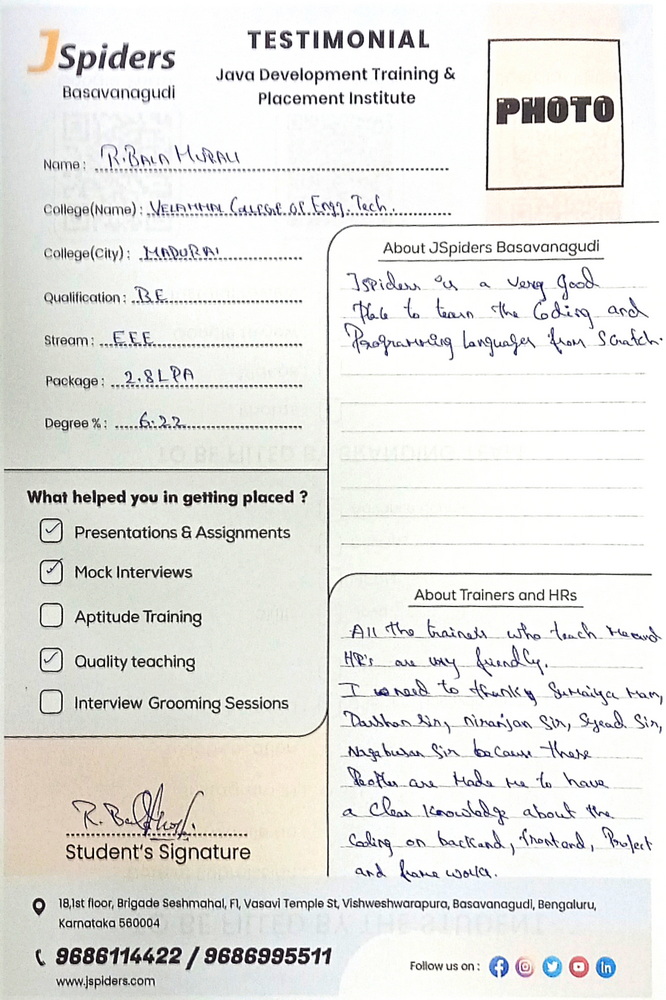 JSpiders
Basavanagudi
TESTIMONIAL
Java Development Training &
Placement Institute
PHOTO
Name : R. BALA MURALI
College(Name) : VELAMMAL College of Engg. Tech.
College(City) : MADURAI
Qualification : B.E
Stream : EEE
Package : 2.8 LPA
Degree % : 6.22
What helped you in getting placed ?
Presentations & Assignments
Mock Interviews
Aptitude Training
Quality teaching
Interview Grooming Sessions
R. Bala
Student's Signature
About JSpiders Basavanagudi
Jspiders is a very good
Place to learn the Coding and
Programming Languages from Scratch.
About Trainers and HRs
All the trainers who teach me and
HR's are very friendly.
I need to thank Sumaiya Mam,
Darshan Sir, Niranjan Sir, Syead Sir,
Sir because these
are Made me to have
a Clear Knowledge about the
Coding on backend, frontend, Project
and frame works.
18,1st floor, Brigade Seshmahal, F1, Vasavi Temple St, Vishweshwarapura, Basavanagudi, Bengaluru,
Karnataka 560004
9686114422 / 9686995511
www.jspiders.com
Follow us on :